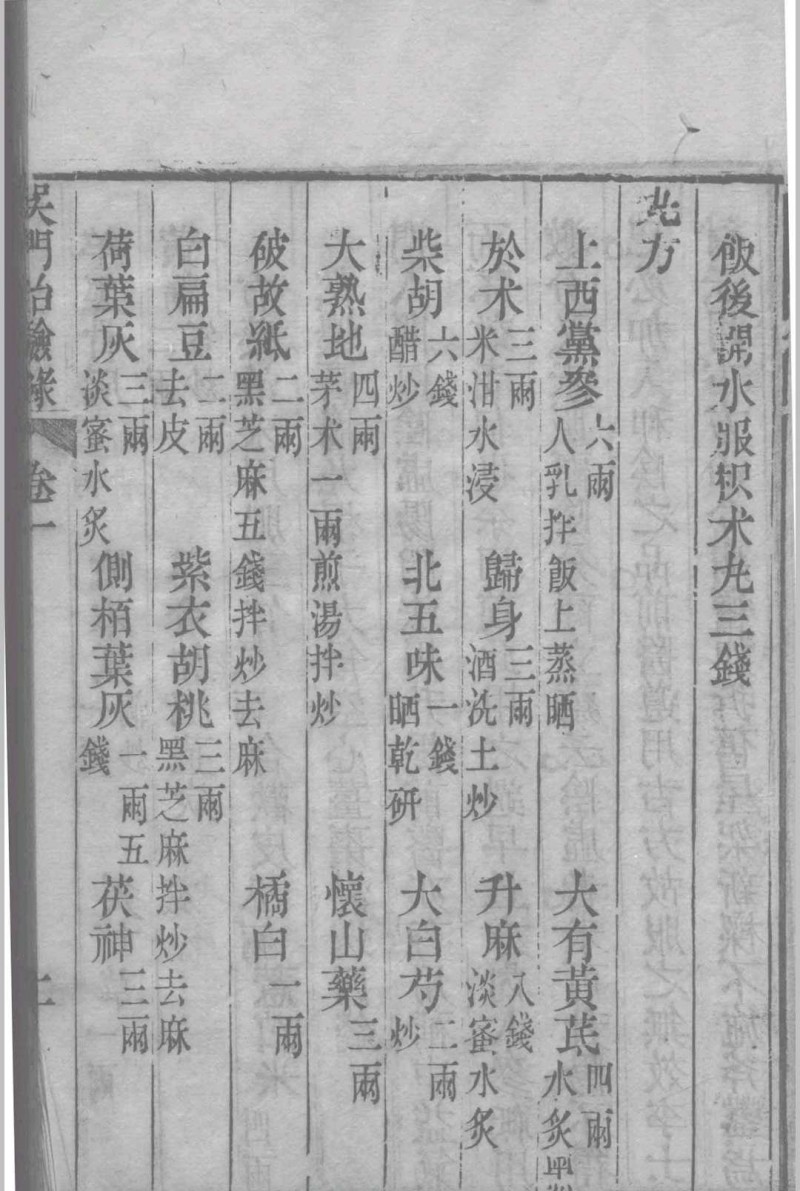 飯後開水服枳术丸三錢
丸方
上西黨參六兩人乳拌飯上蒸晒 大有黃芪四兩水炙
於术三兩米泔水浸 歸身三兩酒洗土炒 升麻八錢淡蜜水炙
柴胡六錢醋炒 北五味一錢晒乾研 大白芍二兩炒
大熟地四兩茅术一兩煎湯拌炒 懷山藥三兩
破故紙二兩黑芝麻五錢拌炒去麻 橘白一兩
白扁豆二兩去皮 紫衣胡桃三兩黑芝麻拌炒去麻
荷葉灰三兩淡蜜水炙 側栢葉灰一兩五錢 茯神三兩
吳門治驗錄 卷一